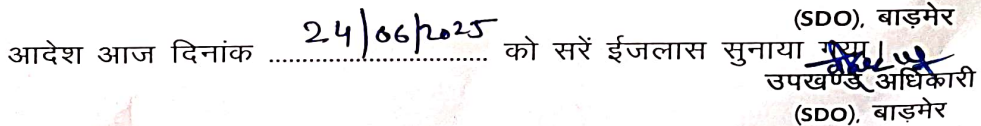 (SDO), बाड़मेर
आदेश आज दिनांक 24/06/2025 को सरें ईजलास सुनाया गया।
उपखण्ड अधिकारी
(SDO), बाड़मेर